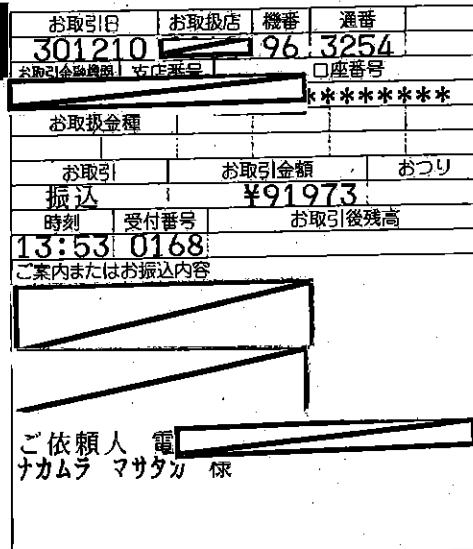 お取引日 お取扱店 機番 通番
301210 96 3254
お取引金融機関 支店番号 口座番号
********
お取扱金種
お取引 お取引金額 おつり
振込 ¥91973
時刻 受付番号 お取引後残高
13:53 0168
ご案内またはお振込内容
ご依頼人 電
ナカムラ マサタカ 様